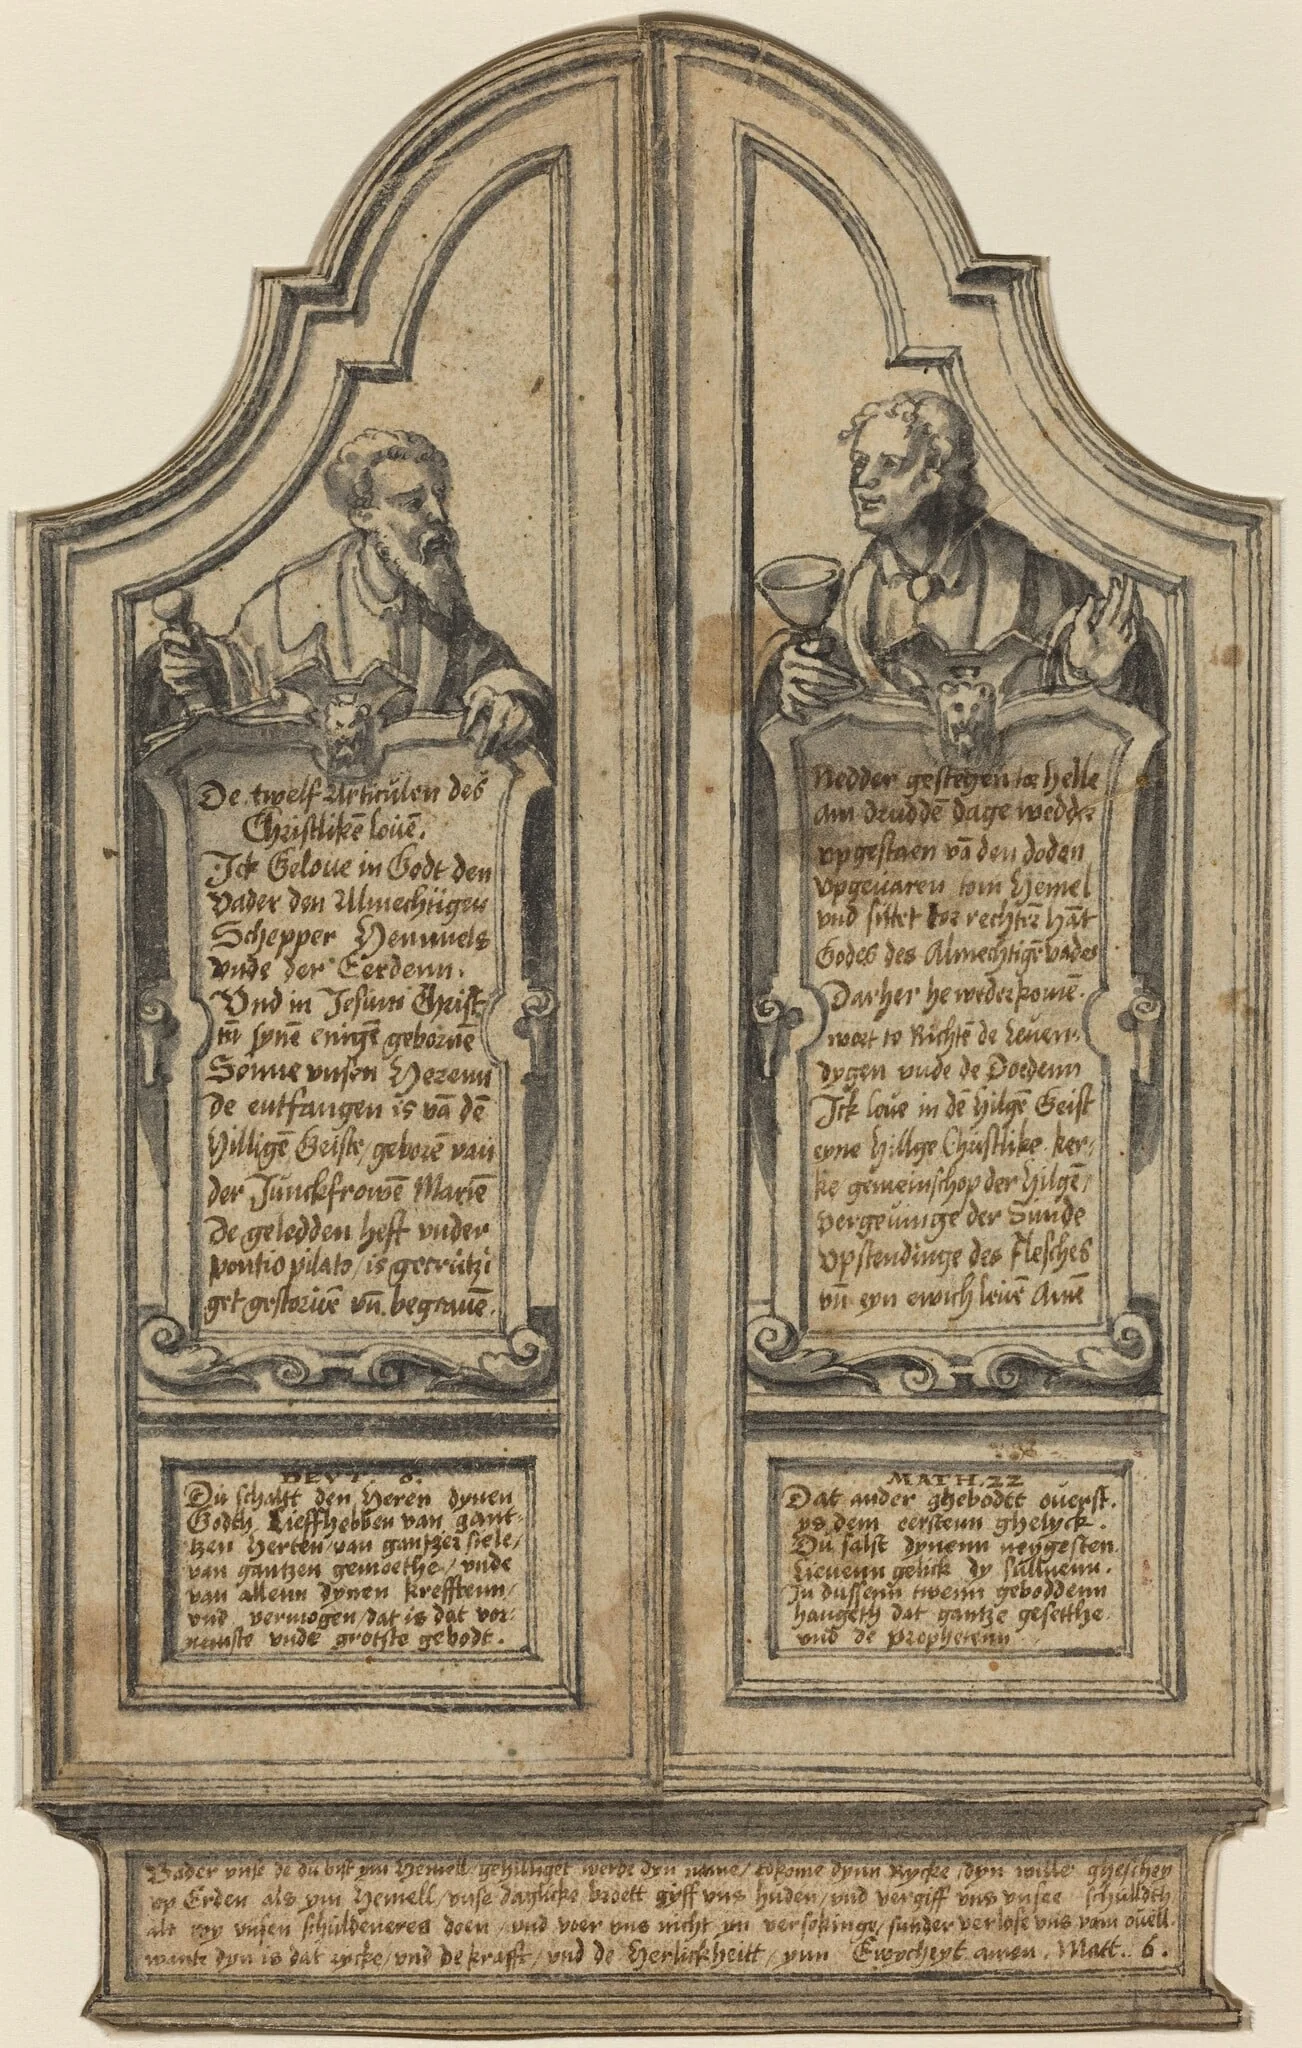 De twelf Articulen des
Christlikē louē.
Ick Geloue in Godt den
Vader den Almechtigen
Schepper Hemmels
vnde der Eerdenn.
Vnd in Jesum Christ
tū synē enigē gebornē
Sonne vnsen Herenn
De entfangen is vā dē
Hilligē Geiste/geborē van
der Junckfrowē Mariē
De geledden heft vnder
pontio pilato/is gecrützi
get gestoruē vn̄ begrauē.
Nedder gestegen toe helle
am drudden dage wedder
vpgestaen vā den doden
vpgeuaren tom Hemel
vnd sittet tor rechter hāt
Godes des Almechtigē vades
Darher he wederkomē.
wort to Richtē de Leuen-
dygen vnde de Doedenn
Ick loue in dē Hilgē Geist
eyne Hillge Christlike ker-
ke gemeinschop der Hilgē/
vergeuinge der Sunde
vpstendinge des Flesches
vn̄ eyn ewich leuē Amē
DEVT. 6.
Du schaltt den Heren dynen
Godth Lieffhebben van gant-
tzen Herten/van gantzer siele/
van gantzen gemoethe/vnde
van allenn dynen krefftenn/
vnd vermogen/dat is dat vor-
nemste vnde grotste gebodt.
MATH. 22
Dat ander ghebodtt ouerst.
ys dem eerstenn ghelyck.
Du salst dynenn neygesten.
Lieuenn gelick dy sulluenn.
In dussenn twenn geboddenn
hangeth dat gantze gesetthe
vnd de prophetenn
Vader vnse de du bist ym Hemell/gehilliget werde dyn name/tokome dynn Rycke/dyn wille gheschey
vp Erden als ym Hemell/vnse daglicke broett gyff vns huden/vnd vergiff vns vnsee schulldth
alt wy vnsen schuldeneres doen/vnd voer vns nicht yn versokinge/sunder verlose vns vam ouell.
wante dyn is dat rycke/vnd de krafft/vnd de Herlickheitt/ynn Ewycheyt amen. Matt. 6.